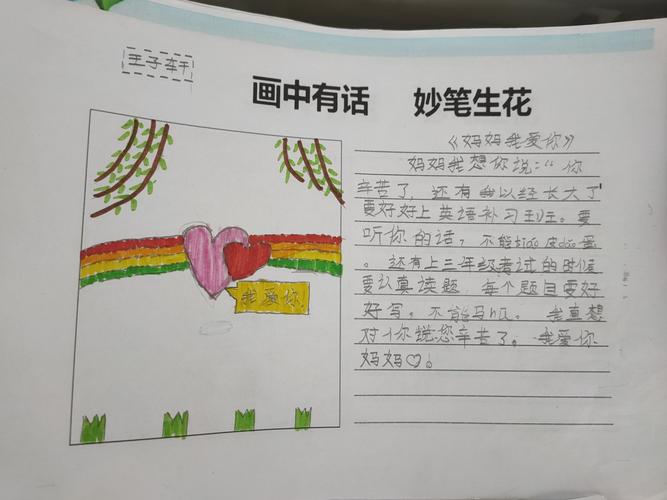 王子轩
画中有话 妙笔生花
《妈妈我爱你》
妈妈我想你说：“你
辛苦了，还有我以经长大了
要好好上英语补习班。要
听你的话，不能tiáo皮dǎo蛋
。还有上三年级考试的时候
要认真读题，每个题目要好
好写。不能马hu。我直想
对你说您辛苦了。我爱你
妈妈♡。
我爱你